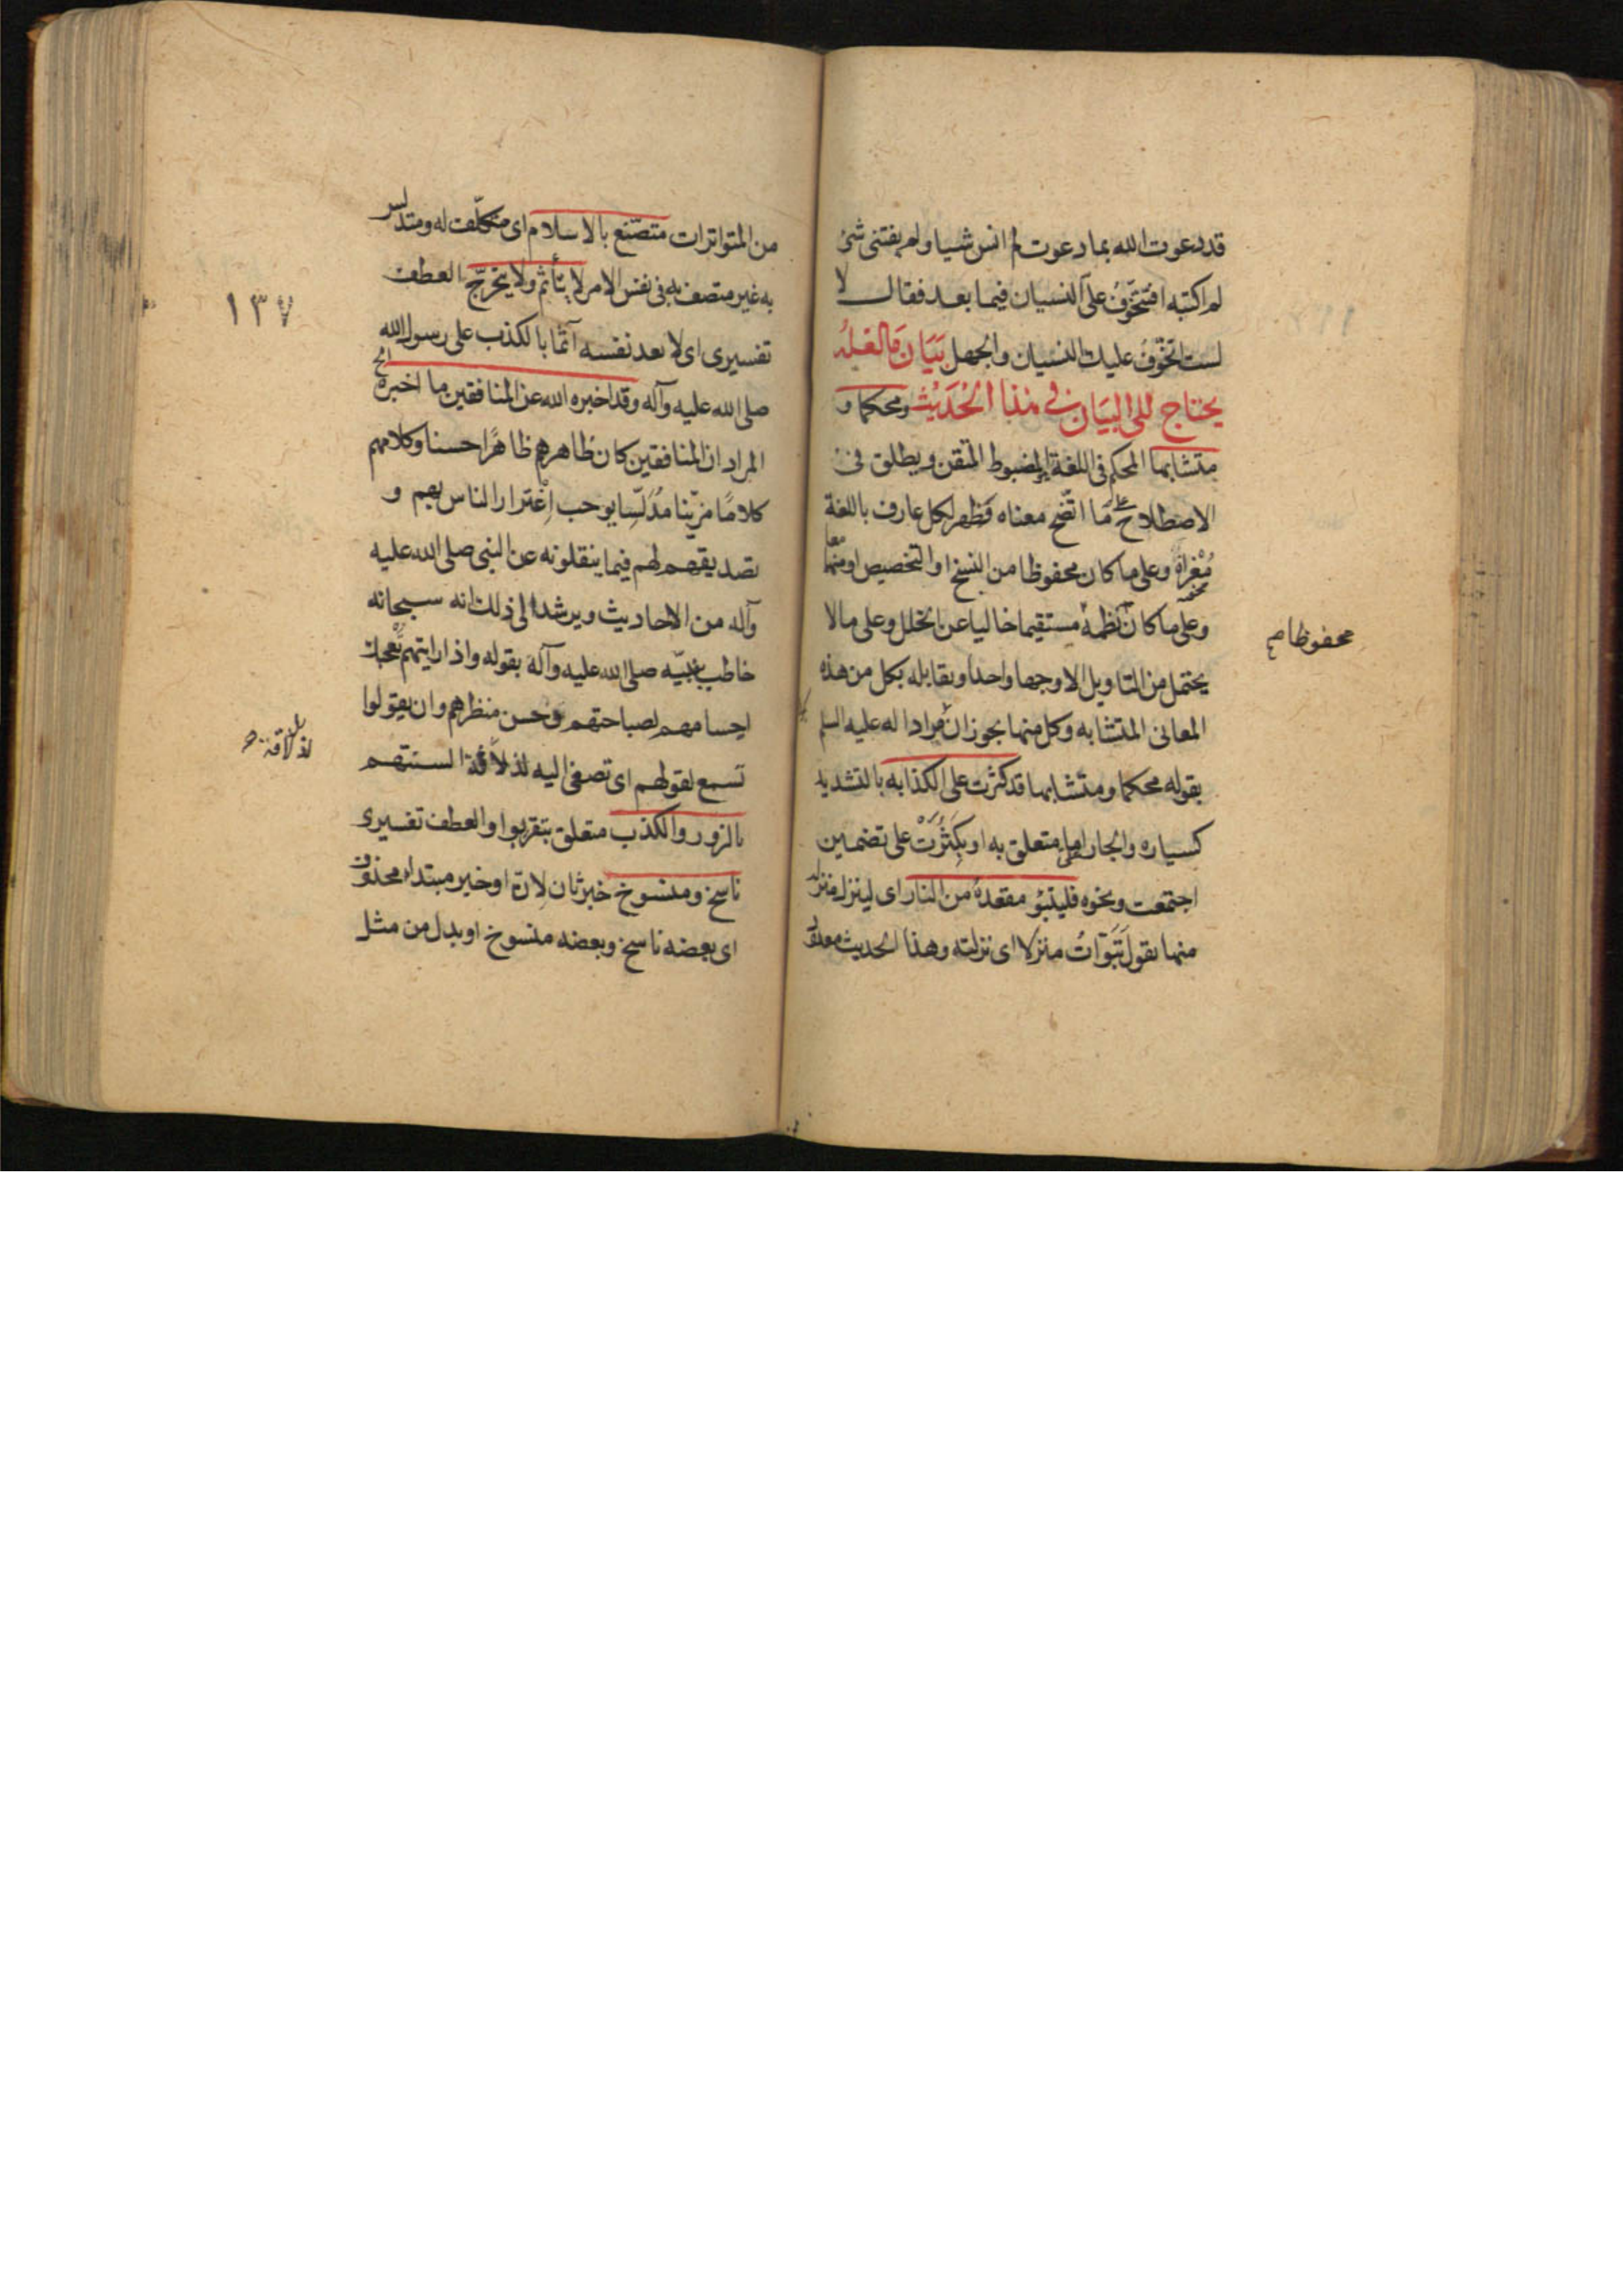 قد دعوت الله بما دعوت لم انس شيا ولم يفتنى شئ
لم اكتبه افتتخوّف علىّ النسيان فيما بعد فقال لا
لست اتخوّف عليك النسيان والجهل بَيَان مَا لعَلّهُ
يحتاج الى البيَان فى هٰذا الحَديث ومحكما و
متشابها المحكم فى اللغة المضبوط المتقن ويطلق فى
الاصطلاح على مَا اتّضح معناه وظهر لكل عارف باللغة
وعلى ما كان محفوظا من النسخ او التخصيص او منهما معا
وعلى ما كان نظمهُ مستقيما خاليا عن الخلل وعلى ما لا
يحتمل من التاويل الا وجها واحدا ويقابله بكل من هذه
المعانى المتشابه وكل منها يجوز ان مرادا له عليه السلم
بقوله محكما ومتشابها قد كثرت علىّ الكذابه بالتشديد
كسياره والجار اما متعلق به او بكَثُرَتْ على تضمين
اجتمعت ونحوه فليتبوّ مقعدهُ من النار اى لينزل منزله
منها يقول تَبَوّاتُ منزلا اى نزلته وهذا الحديث
محفوظا م
من المتواترات متصنّع بالاسلام اى متكلّف له ومتدلس
به غير متصف به فى نفس الامر لا يتأثم ولا يتحرّج العطف
تفسيرى اى لا يعد نفسه آثما بالكذب على رسول الله
صلى الله عليه وآله وقد اخبره الله عن المنافقين ما اخبره الخ
المراد ان المنافقين كان ظاهرهم ظاهرًا حسنا وكلامهم
كلامًا مزيّنا مُدلّسا يوجب اِغترار الناس بهم و
تصديقهم لهم فيما ينقلونه عن النبى صلى الله عليه
وآله من الاحاديث ويرشد الى ذلك انه سبحانه
خاطب نبيّه صلى الله عليه وآله بقوله واذا رايتهم تُعجبك
اجسامهم لصباحتهم وحسن منظرهم وان يقولوا
تسمع لقولهم اى تصغى اليه لذلاقة السنتهم
بالزور والكذب متعلق بتقربوا والعطف تفسيرى
ناسخ ومنسوخ خبر ثان لِانّ او خبر مبتداء محذوف
اى بعضه ناسخ وبعضه منسوخ او بدل من مثل
١٣٧
لذلاقة